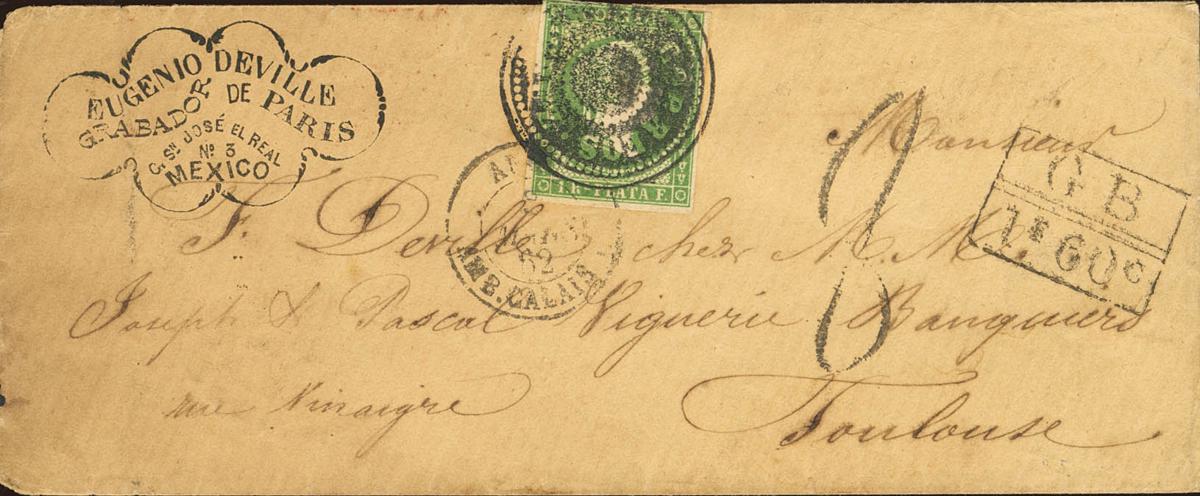 EUGENIO DEVILLE
GRABADOR DE PARIS
C. Sn JOSÉ EL REAL
No 3
MEXICO
1. R. PLATA F.
62
AMB. CALAIS
8
GB
1F 60C
Monsieur
F. Deville chez M. M.
Joseph & Pascal Viguerie Banquiers
rue Vinaigre
Toulouse